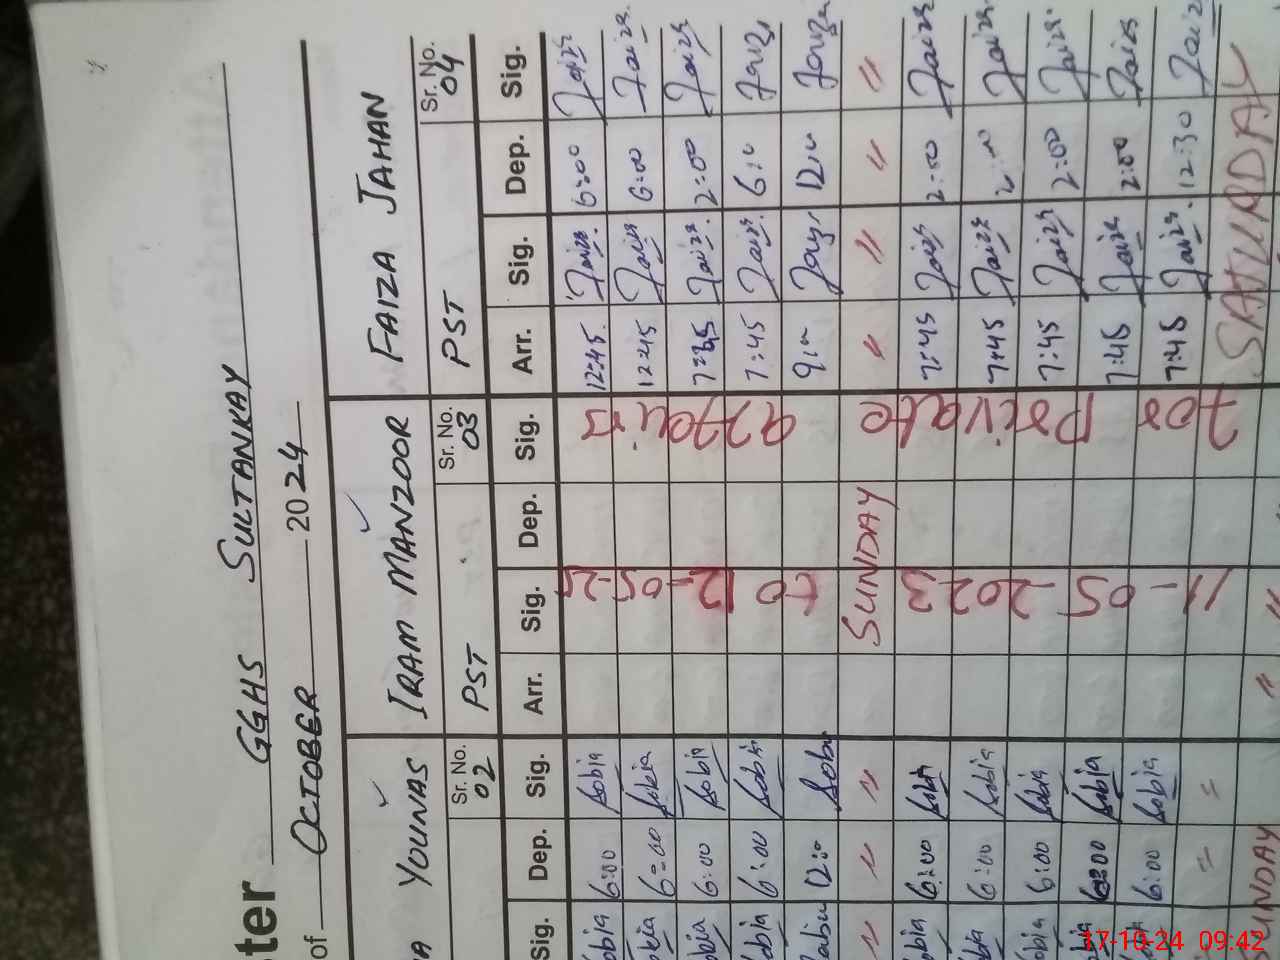 ster GGHS SULTANKAY
of OCTOBER 2024
YOUNAS IRAM MANZOOR FAIZA JAHAN
Sr. No. 02 PST Sr. No. 03 PST Sr. No. 04
Sig. Dep. Sig. Arr. Sig. Dep. Sig. Arr. Sig. Dep. Sig.
Sobia 6:00 Sobia 12:45 Faiza 6:00 Faiza
Sobia 6:00 Sobia 12:45 Faiza 6:00 Faiza
Sobia 6:00 Sobia Faiza 2:00 Faiza
Sobia 6:00 Sobia 7:45 Faiza
" " " SUNDAY " " " "
Sobia 6:00 Sobia 7:45 Faiza 2:00 Faiza
Sobia 6:00 Sobia 7:45 Faiza Faiza
Sobia 6:00 Sobia 7:45 Faiza 2:00 Faiza
Sobia 6:00 Sobia 7:45 Faiza 2:00 Faiza
Sobia 6:00 Sobia 7:45 Faiza 12:30 Faiza
SATURDAY
SUNDAY
11-05-2023 to 12-05-25
for private affairs
17-10-24 09:42